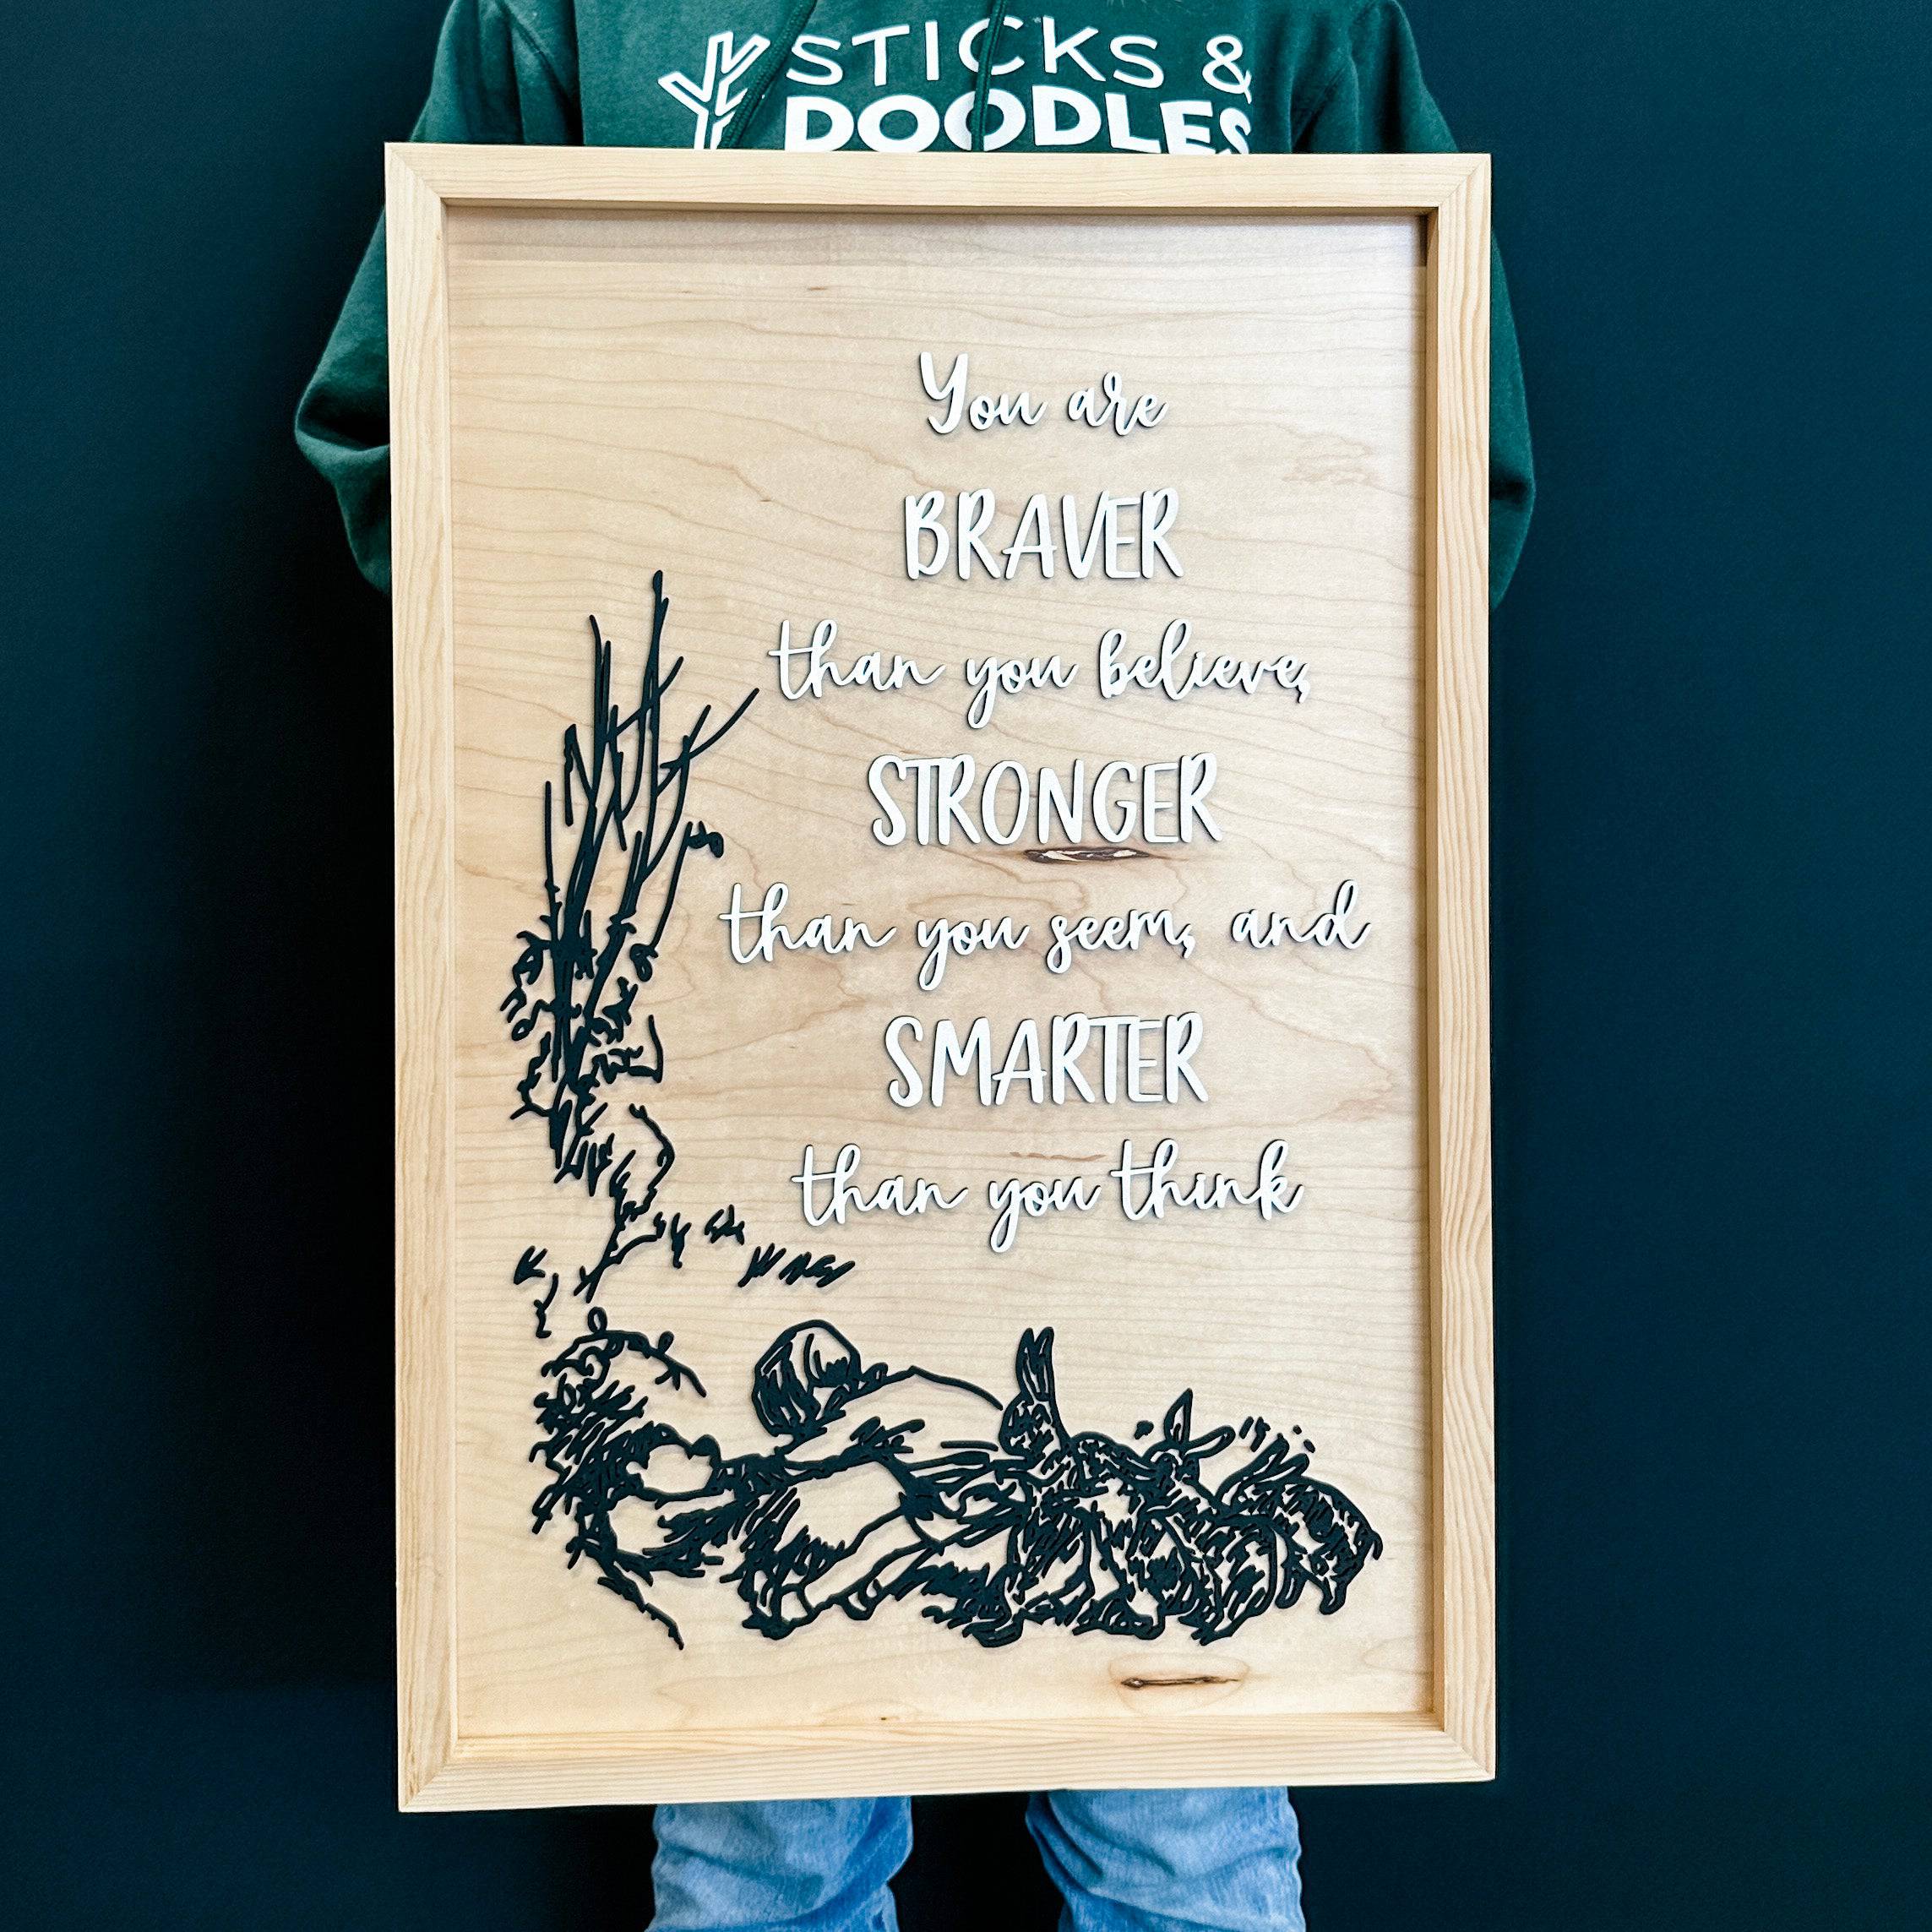 STICKS &
DOODLES
You are
BRAVER
than you believe,
STRONGER
than you seem, and
SMARTER
than you think